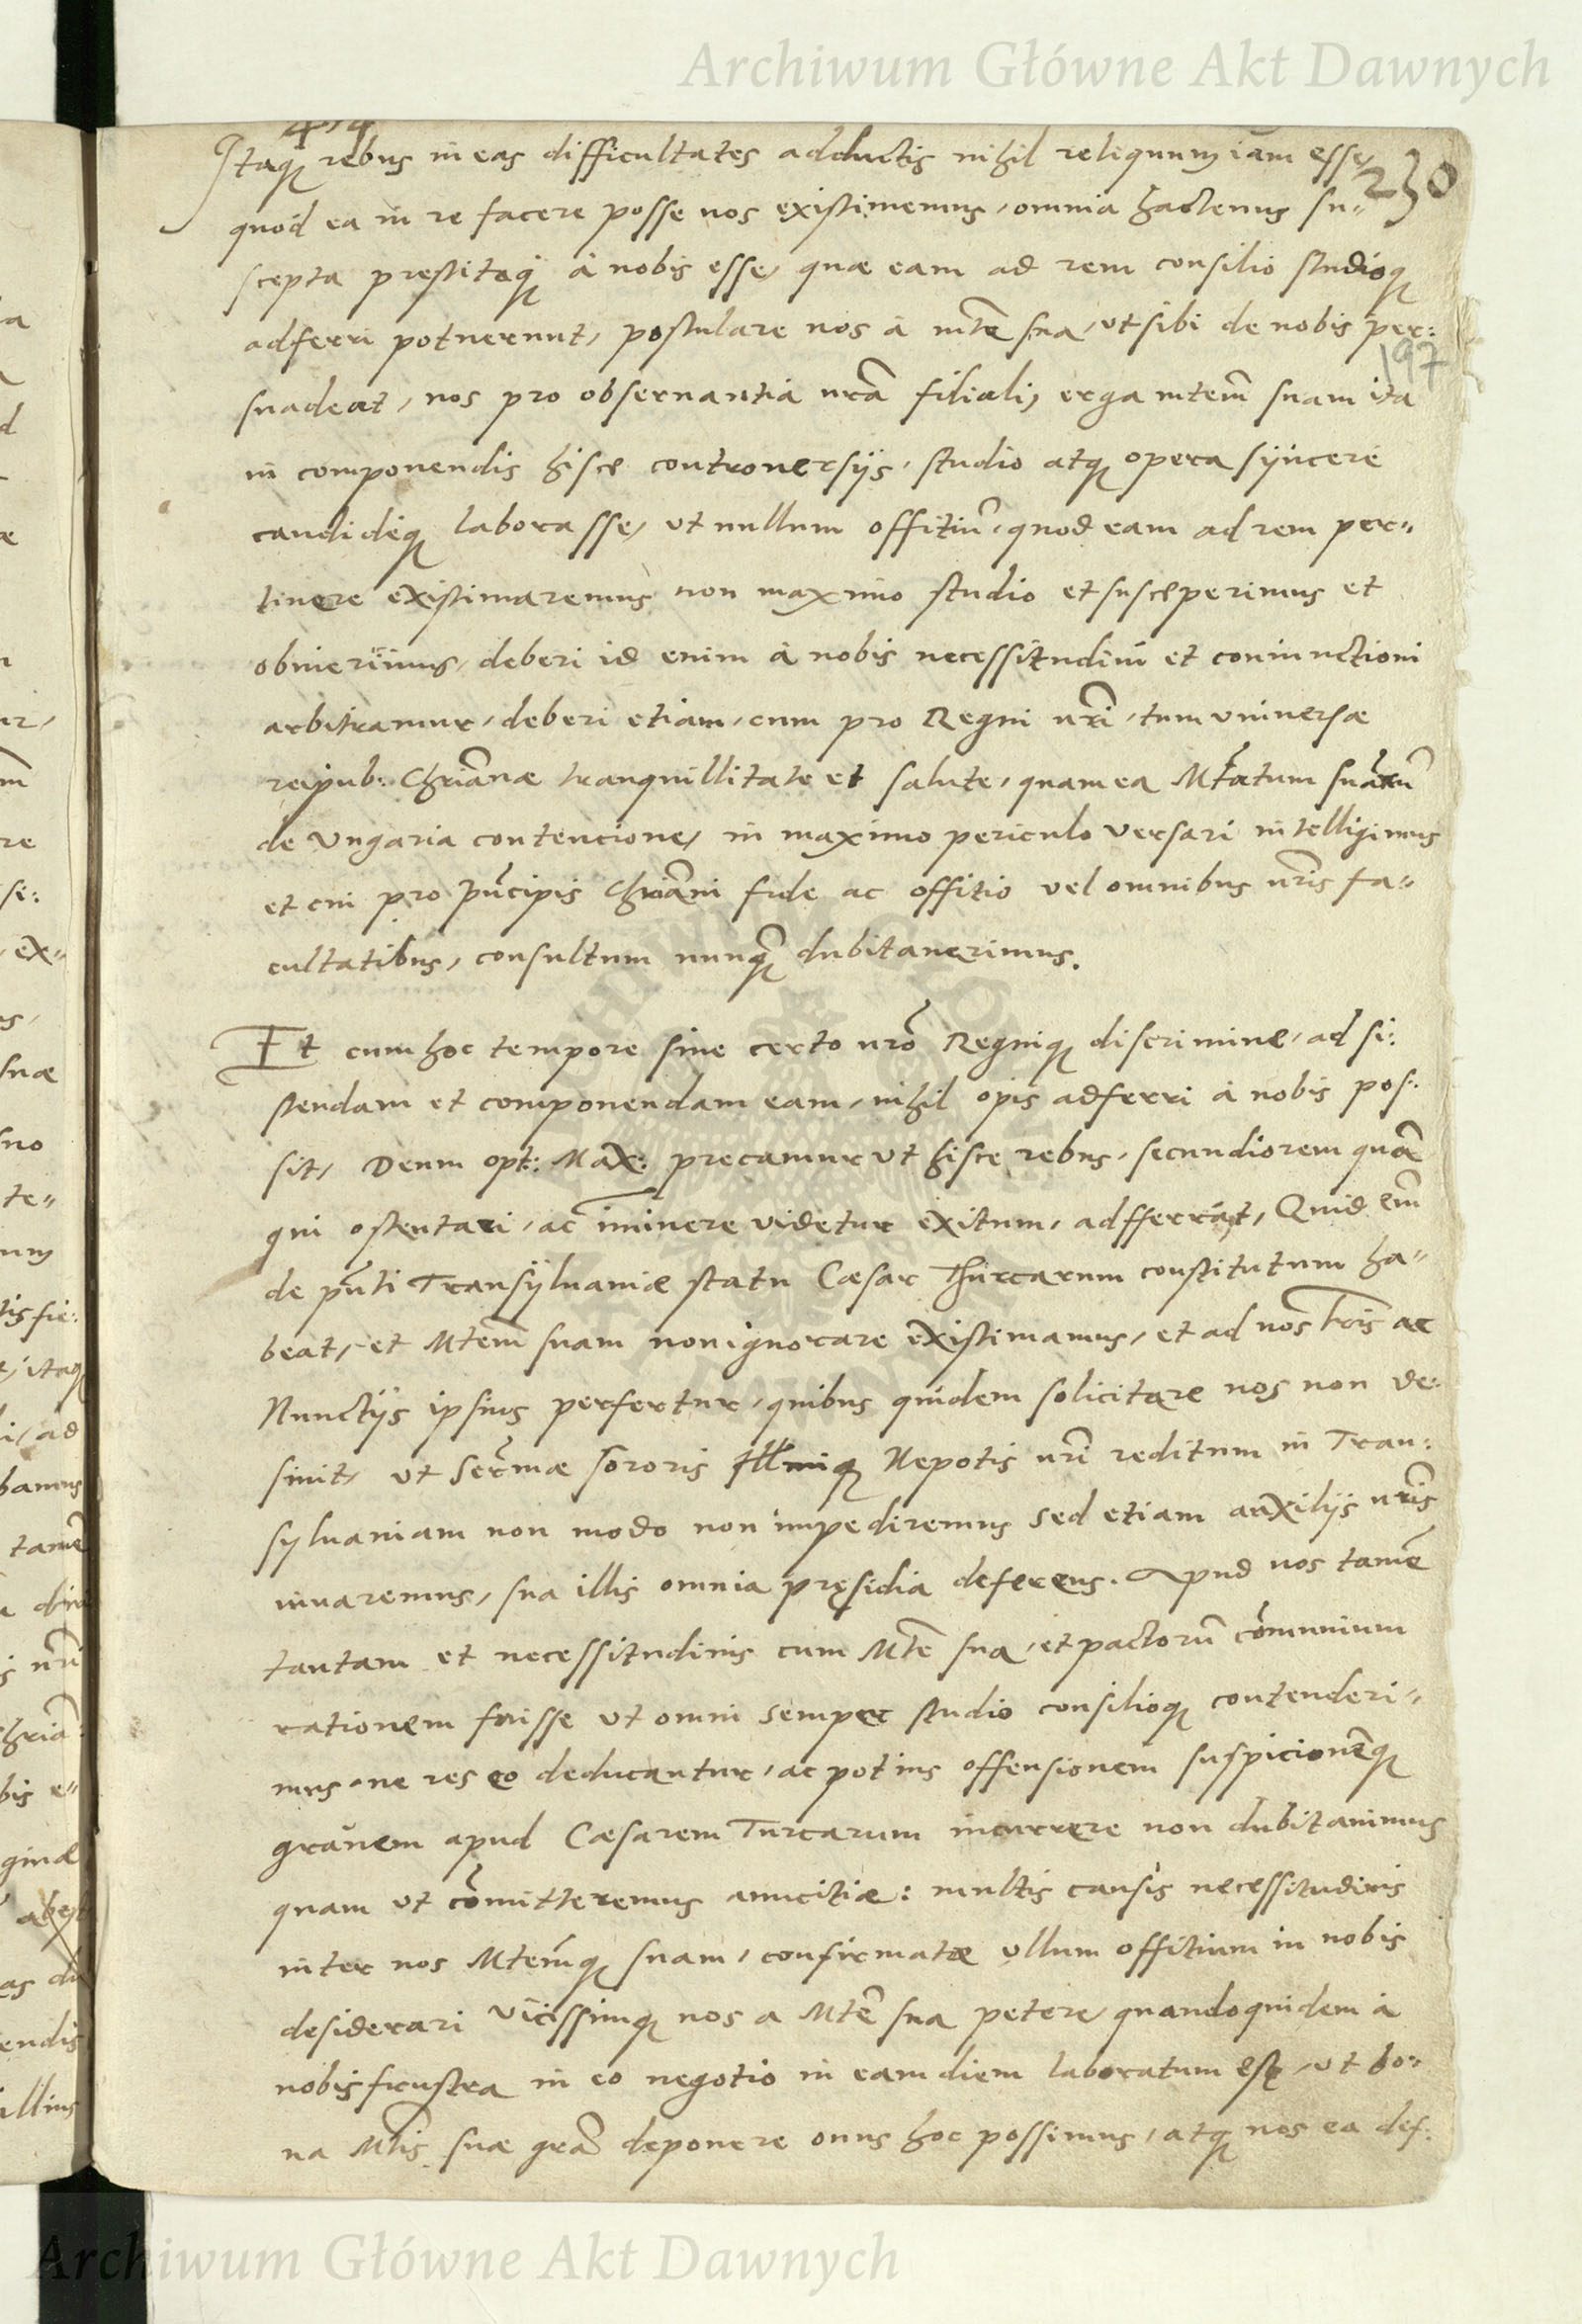 Archiwum Główne Akt Dawnych
Itaq rebus in eas difficultates adductis nihil reliquum iam esse, 230
quod ea in re facere posse nos existimemus, omnia hactenus su=
scepta prestitaq à nobis esse, quae eam ad rem consilio studioq
adferri potuerunt, postulare nos à mte sua, ut sibi de nobis per:
197
suadeat, nos pro obseruantia nrã filiali, erga mtem suam ita
in componendis hisce controuersijs, studio atq opera syncere
candideq laborasse, ut nullum offitiũ, quod eam ad rem per=
tinere existimaremus non maximo studio et susceperimus et
obiuerimus, deberi id enim à nobis necessitudini et coniunctioni
arbitramur, deberi etiam, cum pro Regni nri, tum uniuersae
reipub: Chrianae tranquillitate et salute, quam ea Mtatum suarũ
de Ungaria contencione, in maximo periculo versari intelligimus
et cui pro Pncipis Chriani fide ac offitio vel omnibus nris fa=
cultatibus, consultum nunq dubitauerimus.
Et cum hoc tempore sine certo nro Regniq discrimine, ad si:
stendam et componendam eam, nihil opis adferri à nobis pos:
sit, Deum opt: Max: precamur ut hisce rebus, secundiorem quã
qui ostentari, ac iminere videtur exitum, adfferrat, Quid em
de pnti Transyluaniae statu Caesar Thurcarum constitutum ha=
beat, et Mtem suam non ignorare existimamus, et ad nos lris ac
Nunctijs ipsius perfertur, quibus quidem solicitare nos non de:
sinit, ut Sermae sororis Illmiq Nepotis nri reditum in Tran:
syluaniam non modo non impediremus sed etiam auxilijs nris
iuuaremus, sua illis omnia pręsidia deferens. Apud nos tamẽ
tantam et necessitudinis cum Mte sua, et pactorũ cõmunium
rationem fuisse ut omni semper studio consilioq contenderi=
mus, ne res eo deducantur, ac potius offensionem suspicionẽq
grauem apud Caesarem Turcarum incurrere non dubitauimus
quam ut cõmitteremus amicitiae: multis causis necessitudinis
inter nos Mtemq suam, confirmatae ullum offitium in nobis
desiderari vicissimq nos a Mte sua petere, quandoquidem à
nobis frustra in eo negotio in eam diem laboratum est, ut bo=
na Mtis suae grã deponere onus hoc possimus, atq nos ea def:
Archiwum Główne Akt Dawnych